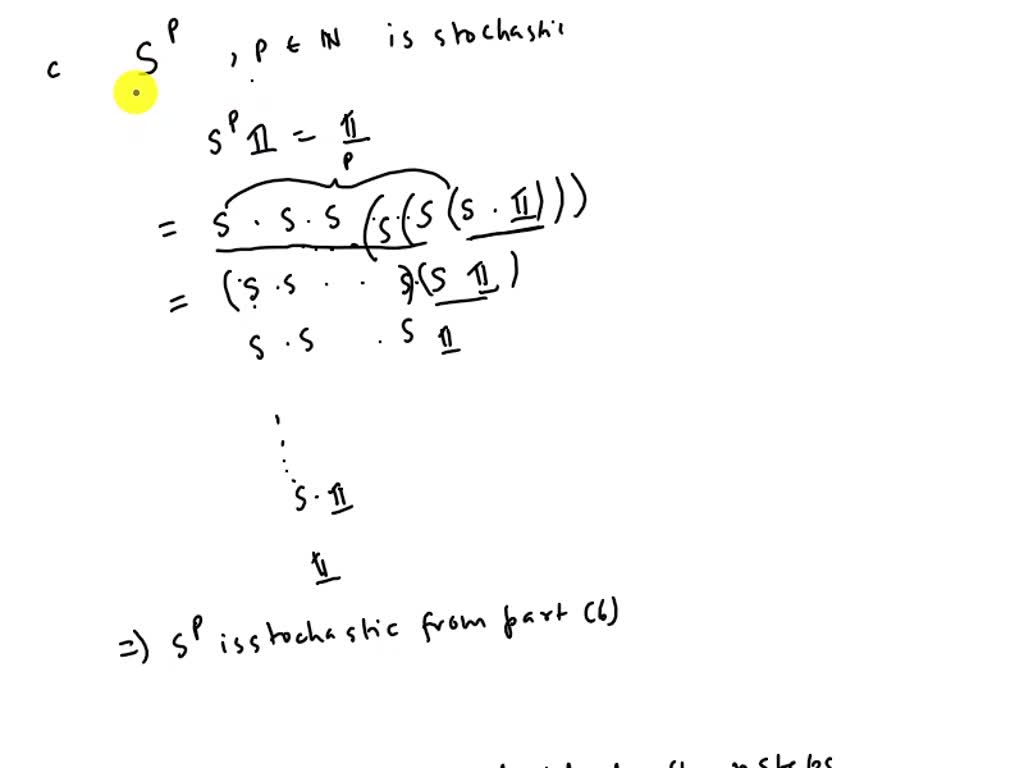 c S^p , p ∈ ℕ is stochastic
S^p 𝟙 = 𝟙
p
= S · S · S · (S · (S (S · 𝟙)))
= (S · S · · S) · (S 𝟙)
S · S · S 𝟙
S · 𝟙
𝟙
=) S^p is stochastic from part (b)
n steps